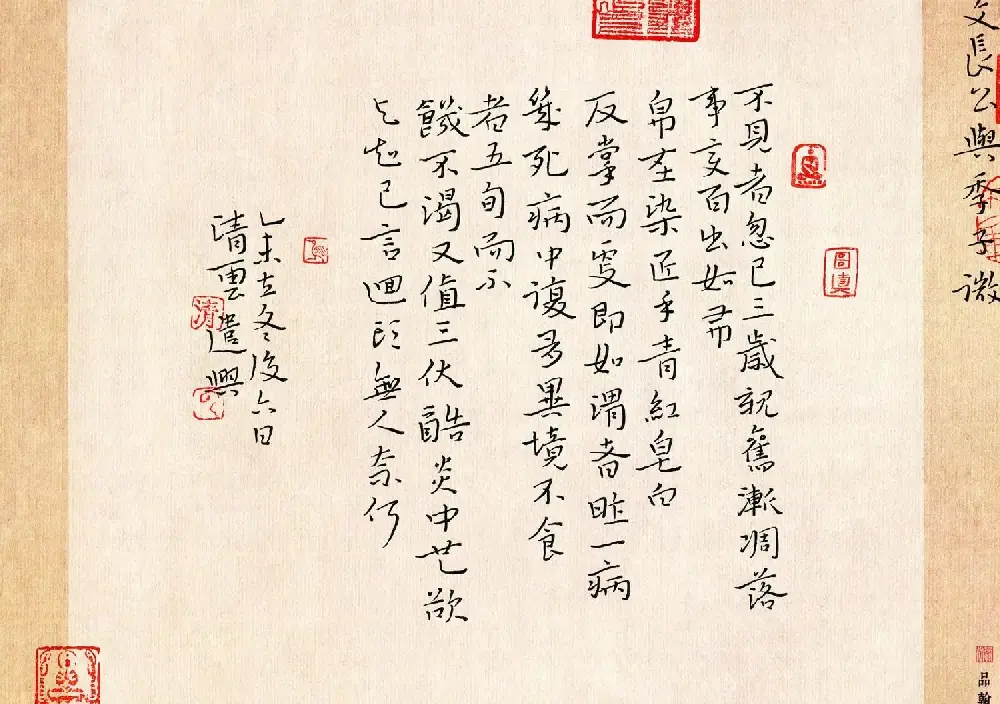 文長公與季子微
不見者忽已三歲親舊漸凋落
事變百出如布
帛在染匠手青紅皂白
反掌而變即如渭者昨一病
幾死病中復多異境不食
者五旬而不
饑不渴又值三伏酷炎中世欲
起已言迴頭無人奈何
乙未立冬後六日
清雲遣興
清
品翰